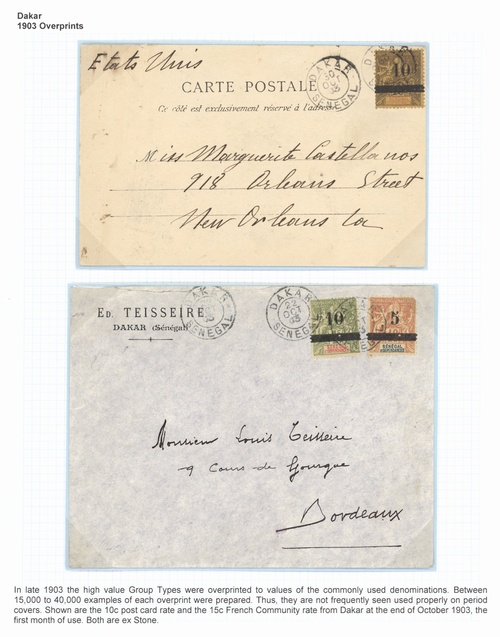 Dakar
1903 Overprints
Etats Unis
CARTE POSTALE
Ce côté est exclusivement réservé à l'adresse
DAKAR
OCT
SÉNÉGAL
10
Miss Marguerite Castellanos
918 Orleans Street
New Orleans La
ED. TEISSEIRE
DAKAR (Sénégal)
DAKAR
SÉNÉGAL
DAKAR
22
OCT
03
SÉNÉGAL
10
5
SÉNÉGAL
Monsieur Louis Teisseire
9 Cours de Gourgue
Bordeaux
In late 1903 the high value Group Types were overprinted to values of the commonly used denominations. Between
15,000 to 40,000 examples of each overprint were prepared. Thus, they are not frequently seen used properly on period
covers. Shown are the 10c post card rate and the 15c French Community rate from Dakar at the end of October 1903, the
first month of use. Both are ex Stone.